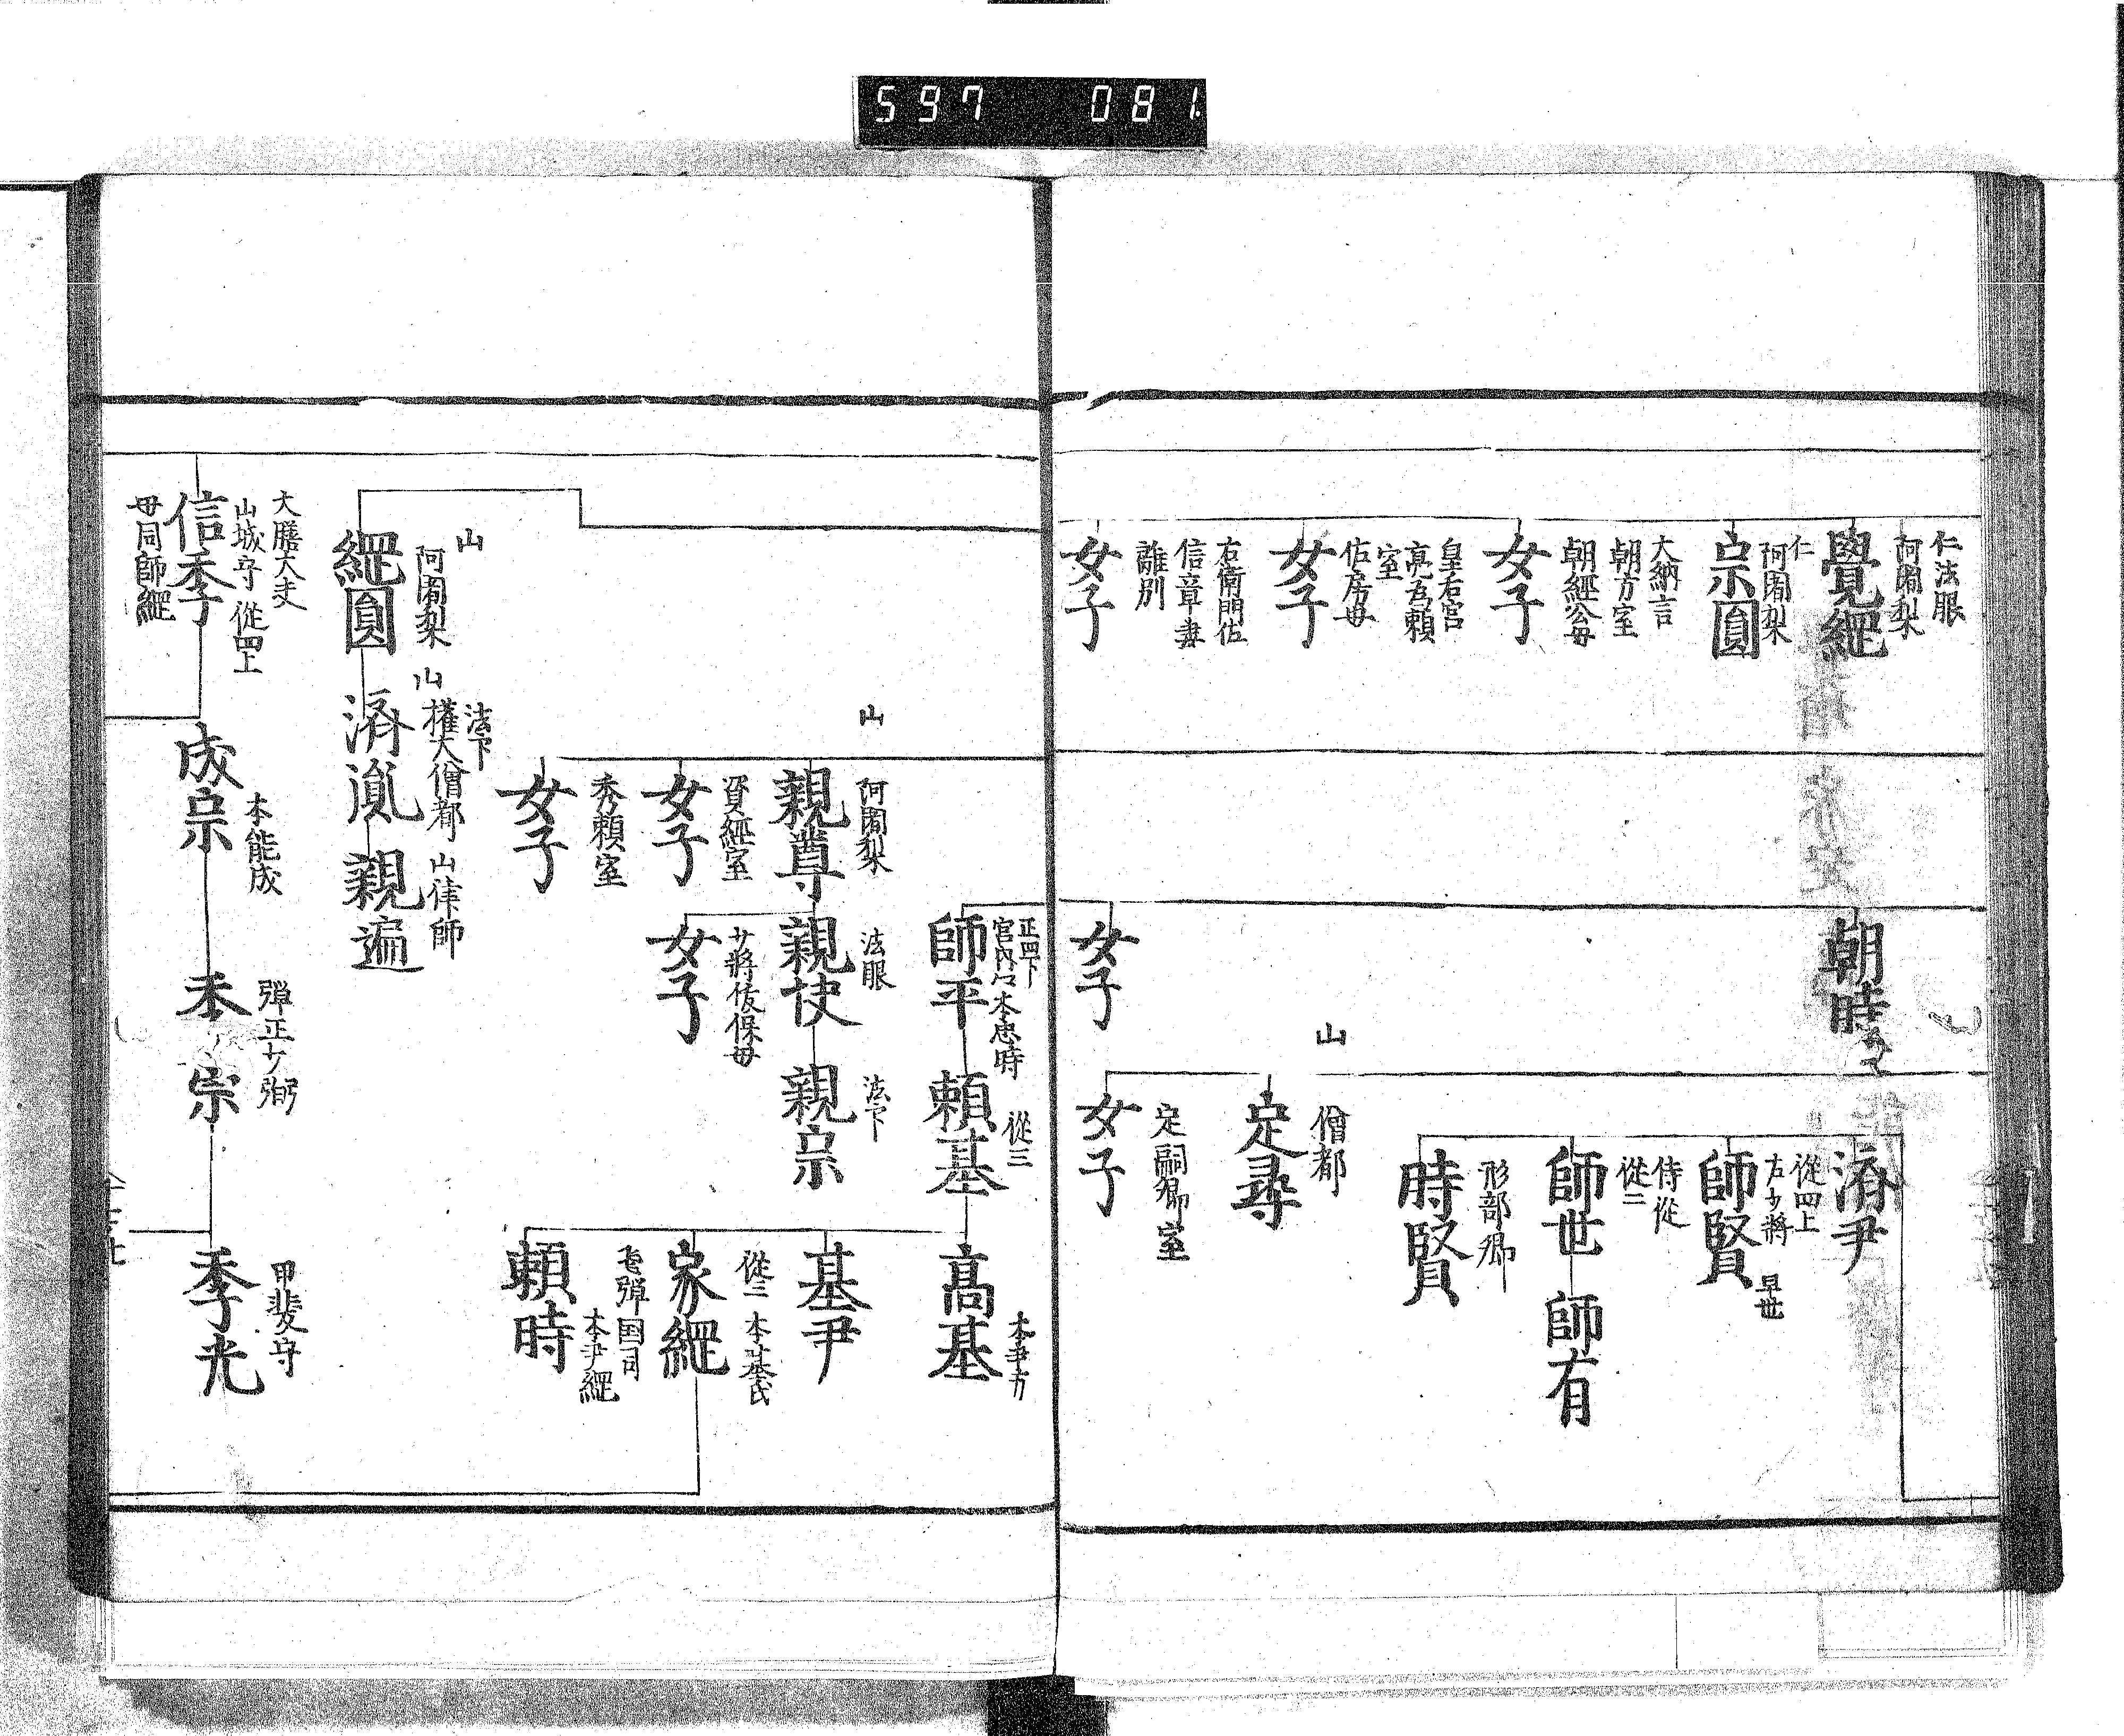 597 081
仁法眼
阿闍梨
覺經
仁
阿闍梨
宗圓
大納言
朝方室
朝經公母
女子
皇后宮
亮吾頼
室
佑房母
女子
右衛門佐
信章妻
離別
女子
朝時
女子
濟尹
從四上
右少將
早世
師賢
侍從
從二
師世
師有
形部卿
時賢
山
僧都
定尋
定嗣卿室
女子
正四下
宮内
本忠時
師平
從三
頼基
高基
基尹
從二
本基氏
家經
弾国司
本尹經
頼時
山
阿闍梨
親尊
法眼
親快
法下
親宗
資經室
女子
女子
秀頼室
女子
山
阿闍梨
經圓
法下
山權大僧都
濟胤
山律師
親遍
大膳大夫
山城守 從四上
信季
母同師經
本能成
成宗
弾正少弼
季宗
甲斐守
季光